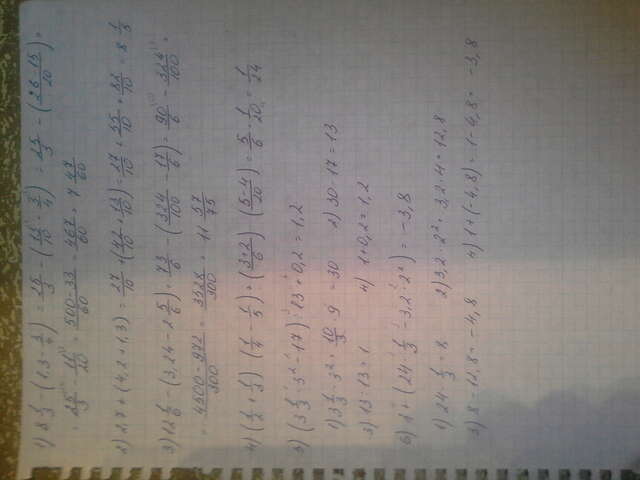 1) 8 1/3 - (1,3 - 3/4) = 25/3 - (13/10 - 3/4) = 25/3 - (26-15/20) =
= 25/3 - 11/20 = 500-33/60 = 467/60 = 7 47/60
2) 2,7 + (4,2 + 1,3) = 27/10 + (42/10 + 13/10) = 27/10 + 55/10 = 82/10 = 8 1/5
3) 12 1/6 - (3,24 - 2 5/6) = 73/6 - (324/100 - 17/6) = 90/6 - 324/100 =
= 4500-972/300 = 3528/300 = 11 57/75
4) (1/2 + 1/3) (1/4 - 1/5) = (3+2/6) (5-4/20) = 5/6 · 1/20 = 1/24
5) (3 1/3 · 3² - 17) : 13 + 0,2 = 1,2
1) 3 1/3 · 3² = 10/3 · 9 = 30 2) 30 - 17 = 13
3) 13 : 13 = 1 4) 1 + 0,2 = 1,2
6) 1 + (24 · 1/3 - 3,2 · 2²) = -3,8
1) 24 · 1/3 = 8 2) 3,2 · 2² = 3,2 · 4 = 12,8
3) 8 - 12,8 = -4,8 4) 1 + (-4,8) = 1 - 4,8 = -3,8